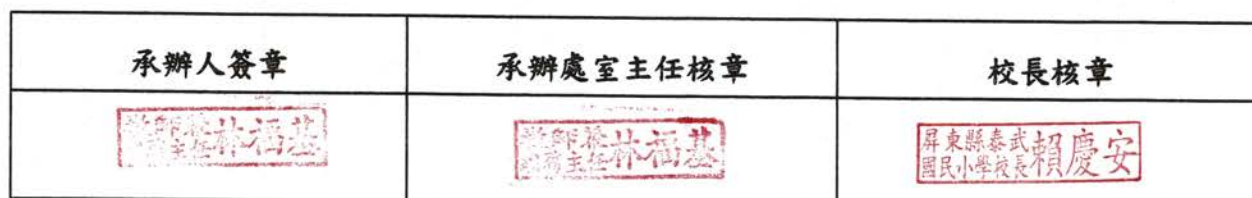 承辦人簽章
承辦處室主任核章
校長核章
林福基
主任林福基
屏東縣泰武
國民小學校長賴慶安